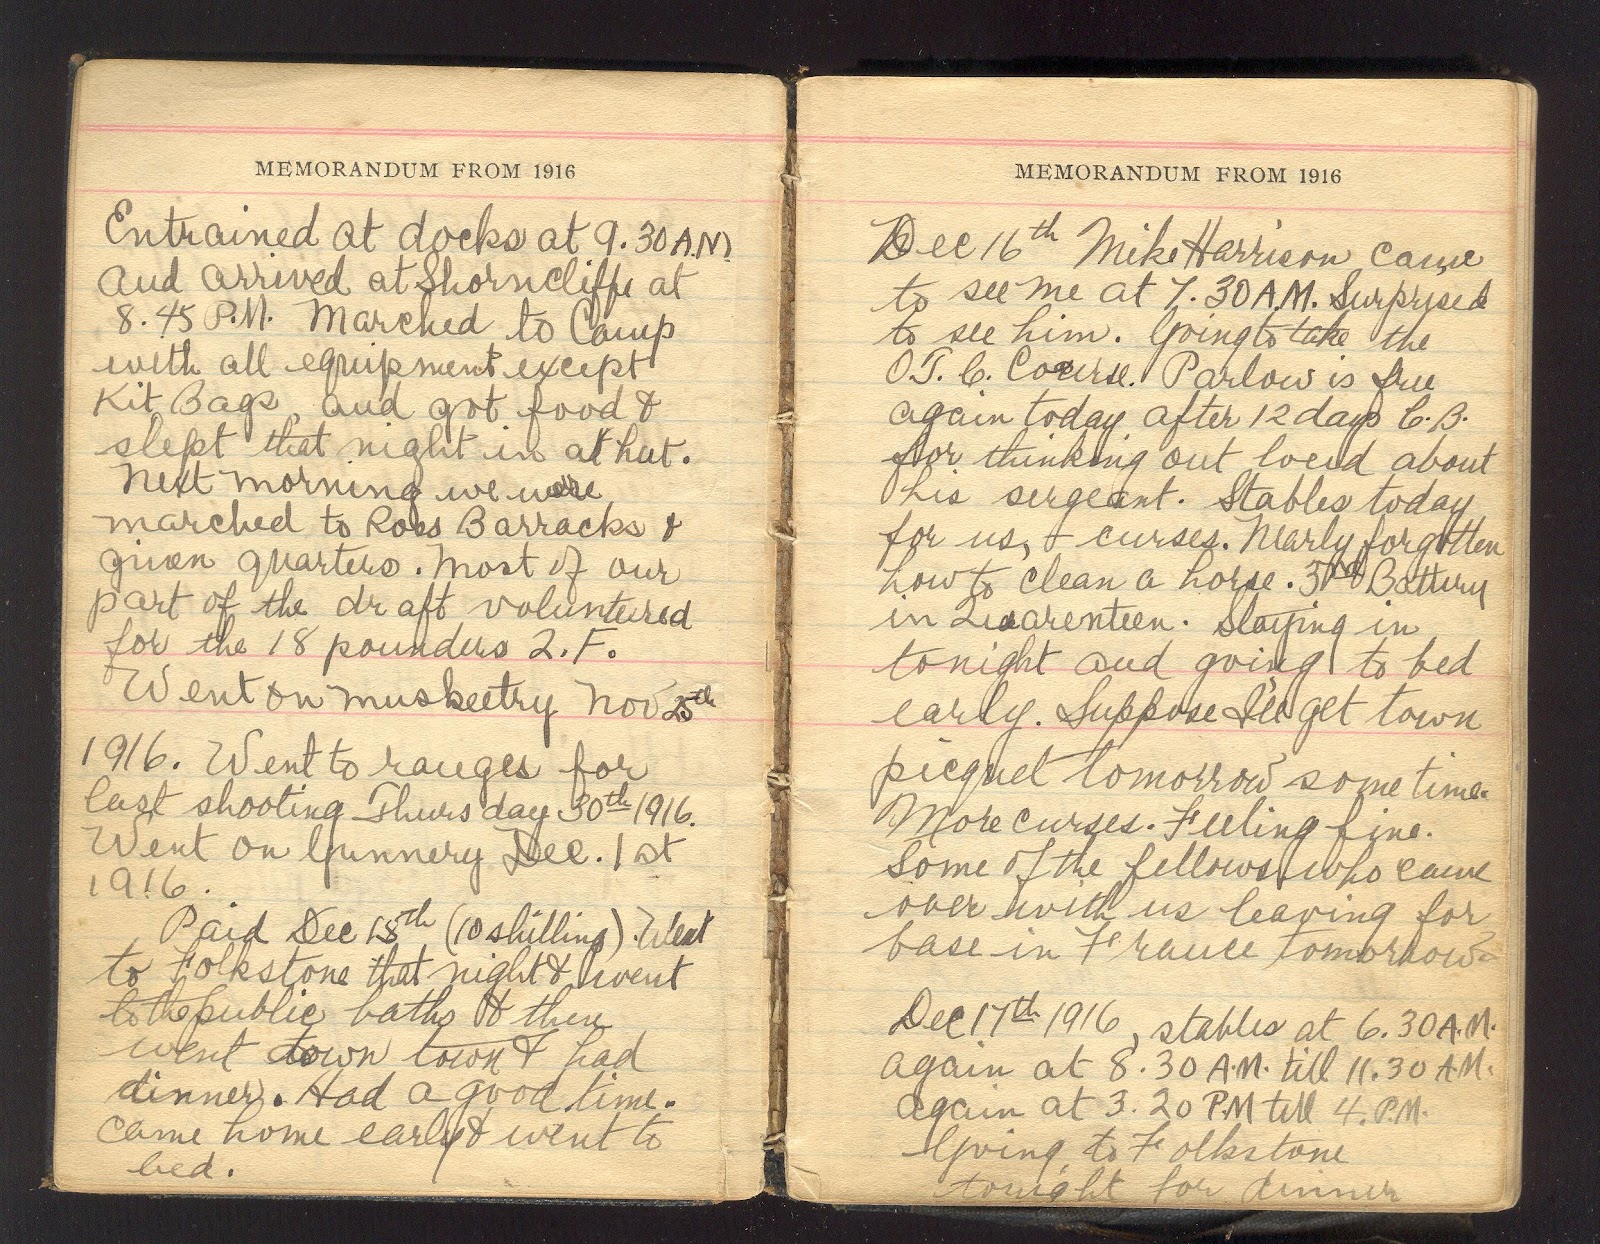 MEMORANDUM FROM 1916
Entrained at docks at 9.30 A.M.
and arrived at Shorncliffe at
8.45 P.M. Marched to Camp
with all equipment except
Kit Bags and got food &
slept that night in a hut.
Next morning we were
marched to Ross Barracks &
given quarters. Most of our
part of the draft voluntered
for the 18 pounders Q.F.
Went on musketry Nov 25th
1916. Went to ranges for
last shooting Thursday 30th 1916.
Went on Gunnery Dec. 1st
1916.
Paid Dec 15th (10 shilling). Went
to Folkstone that night & went
to the public baths & then
went down town & had
dinner. Had a good time.
came home early & went to
bed.
MEMORANDUM FROM 1916
Dec 16th Mike Harrison came
to see me at 7.30 A.M. Surprised
to see him. Going to take the
O.T.C. Course. Parlow is free
again today after 12 days C.B.
for thinking out loud about
his sergeant. Stables today
for us, & curses. Nearly forgotten
how to clean a horse. 3rd Battery
in Quarenteen. Staying in
tonight and going to bed
early. Suppose I'll get town
picquet tomorrow some time.
More curses. Feeling fine.
Some of the fellows who came
over with us leaving for
base in France tomorrow
Dec 17th 1916, stables at 6.30 A.M.
again at 8.30 A.M. till 11.30 A.M.
again at 3.20 P.M till 4. P.M.
Going to Folkstone
tonight for dinner